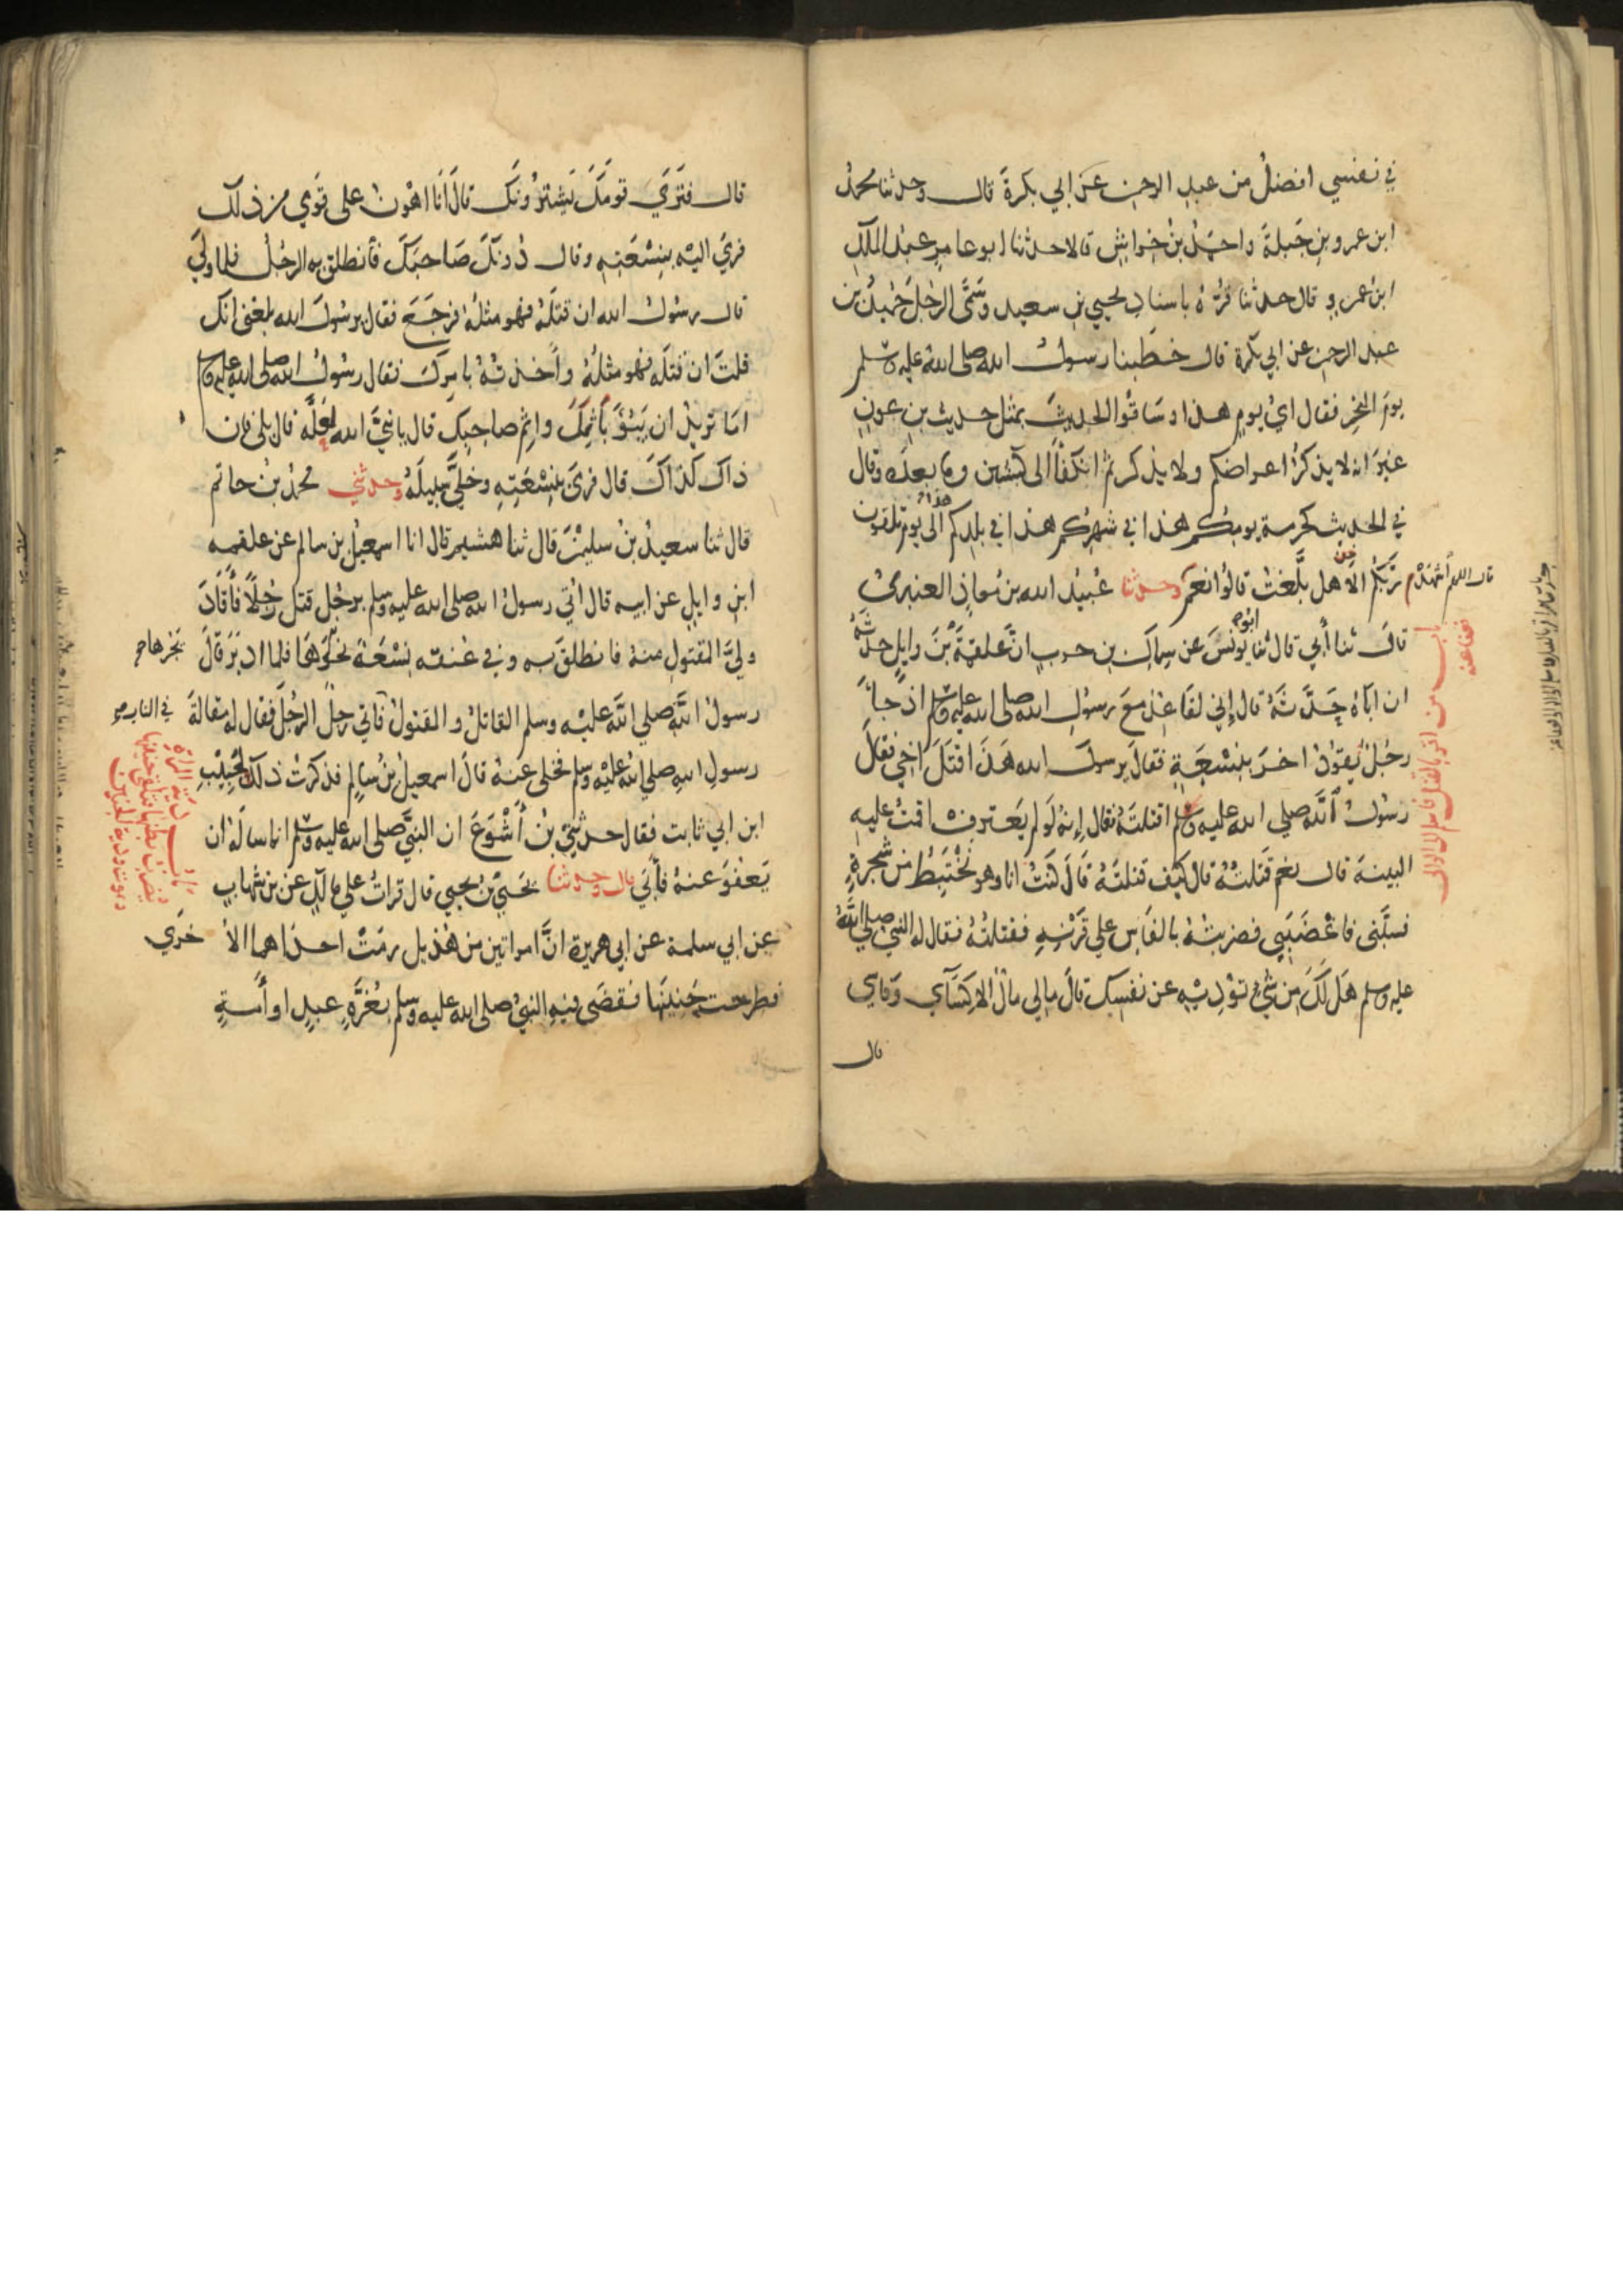 في نفسي افضل من عبد الرحمن عن ابي بكرة قال وحدثنا محمد
ابن عمرو بن جبلة واحمد بن خراش قالا حدثنا ابو عامر عبد الملك
ابن عمرو قال حدثنا قرة باسناد يحيي بن سعيد وسمى الرجل حميد بن
عبد الرحمن عن ابي بكرة قال خطبنا رسول الله صلى الله عليه وسلم
يوم النحر فقال اي يوم هذا وساقوا الحديث بمثل حديث بن عون
غير انه لا يذكر اعراضكم ولا يذكر ثم انكفأ الى كبشين وما بعده وقال
في الحديث كحرمة يومكم هذا في شهركم هذا في بلدكم هذا الى يوم تلقون
ربكم الا هل بلغت قالوا نعم وحدثنا عبيد الله بن معاذ العنبري
قال اللهم اشهد
باب من اقر بالقتل فاسلم الى الولي
فعفا عنه
قال ثنا أبي قال ثنا ابو يونس عن سماك بن حرب ان علقمة بن وايل حدثه
ان اباه حدثه قال إني لقاعد مع رسول الله صلى الله عليه وسلم اذ جاء
رجل يقود اخر بنسعة فقال يرسول الله هذا قتل اخي فقال
رسول الله صلي الله عليه وسلم اقتلته فقال إنه لو لم يعترف اقمت عليه
البينة قال نعم قتلته قال كيف قتلته قال كنت انا وهو نختبط من شجرة
فسبني فاغضبني فضربته بالفاس علي قرنه فقتلته فقال له النبي صلي الله
عليه وسلم هل لك من شيء تؤديه عن نفسك قال مالي مال الا كسآي وفاسي
قال
قال فتري قومك يشترونك قال أنا اهون على قومي من ذلك
فرمي اليه بنسعته وقال دونك صاحبك فأنطلق به الرجل فلما ولي
قال رسول الله ان قتله فهو مثله فرجع فقال يرسول الله بلغني انك
قلت ان قتله فهو مثله وأخذته بامرك فقال رسول الله صلى الله عليه وسلم
اما تريد ان يبوء بأثمك واثم صاحبك قال يا نبي الله لعله قال بلى قال فان
ذاك كذاك قال فرمى بنسعته وخلي سبيله وحدثني محمد بن حاتم
قال ثنا سعيد بن سليمن قال ثنا هشيم قال انا اسمعيل بن سالم عن علقمه
ابن وايل عن ابيه قال اتي رسول الله صلى الله عليه وسلم برجل قتل رجلا فأقاد
ولي المقتول منه فانطلق به وفي عنقه نسعة يجرها فلما ادبر قال
يجرها
رسول الله صلي الله عليه وسلم القاتل والمقتول في النار فأتي رجل الرجل فقال له مقالة
رسول الله صلي الله عليه وسلم فخلى عنه قال اسمعيل بن سالم فذكرت ذلك لحبيب
ابن ابي ثابت فقال حدثني بن أشوع ان النبي صلى الله عليه وسلم انما سأله ان
يعفو عنه فأبي قال وحدثنا يحيي بن يحيي قال قرات علي مالك عن بن شهاب
عن ابي سلمة عن ابي هريرة ان امراتين من هذيل رمت احداهما الاخري
فطرحت جنينها فقضى فيه النبي صلى الله عليه وسلم بغرة عبد او أمة